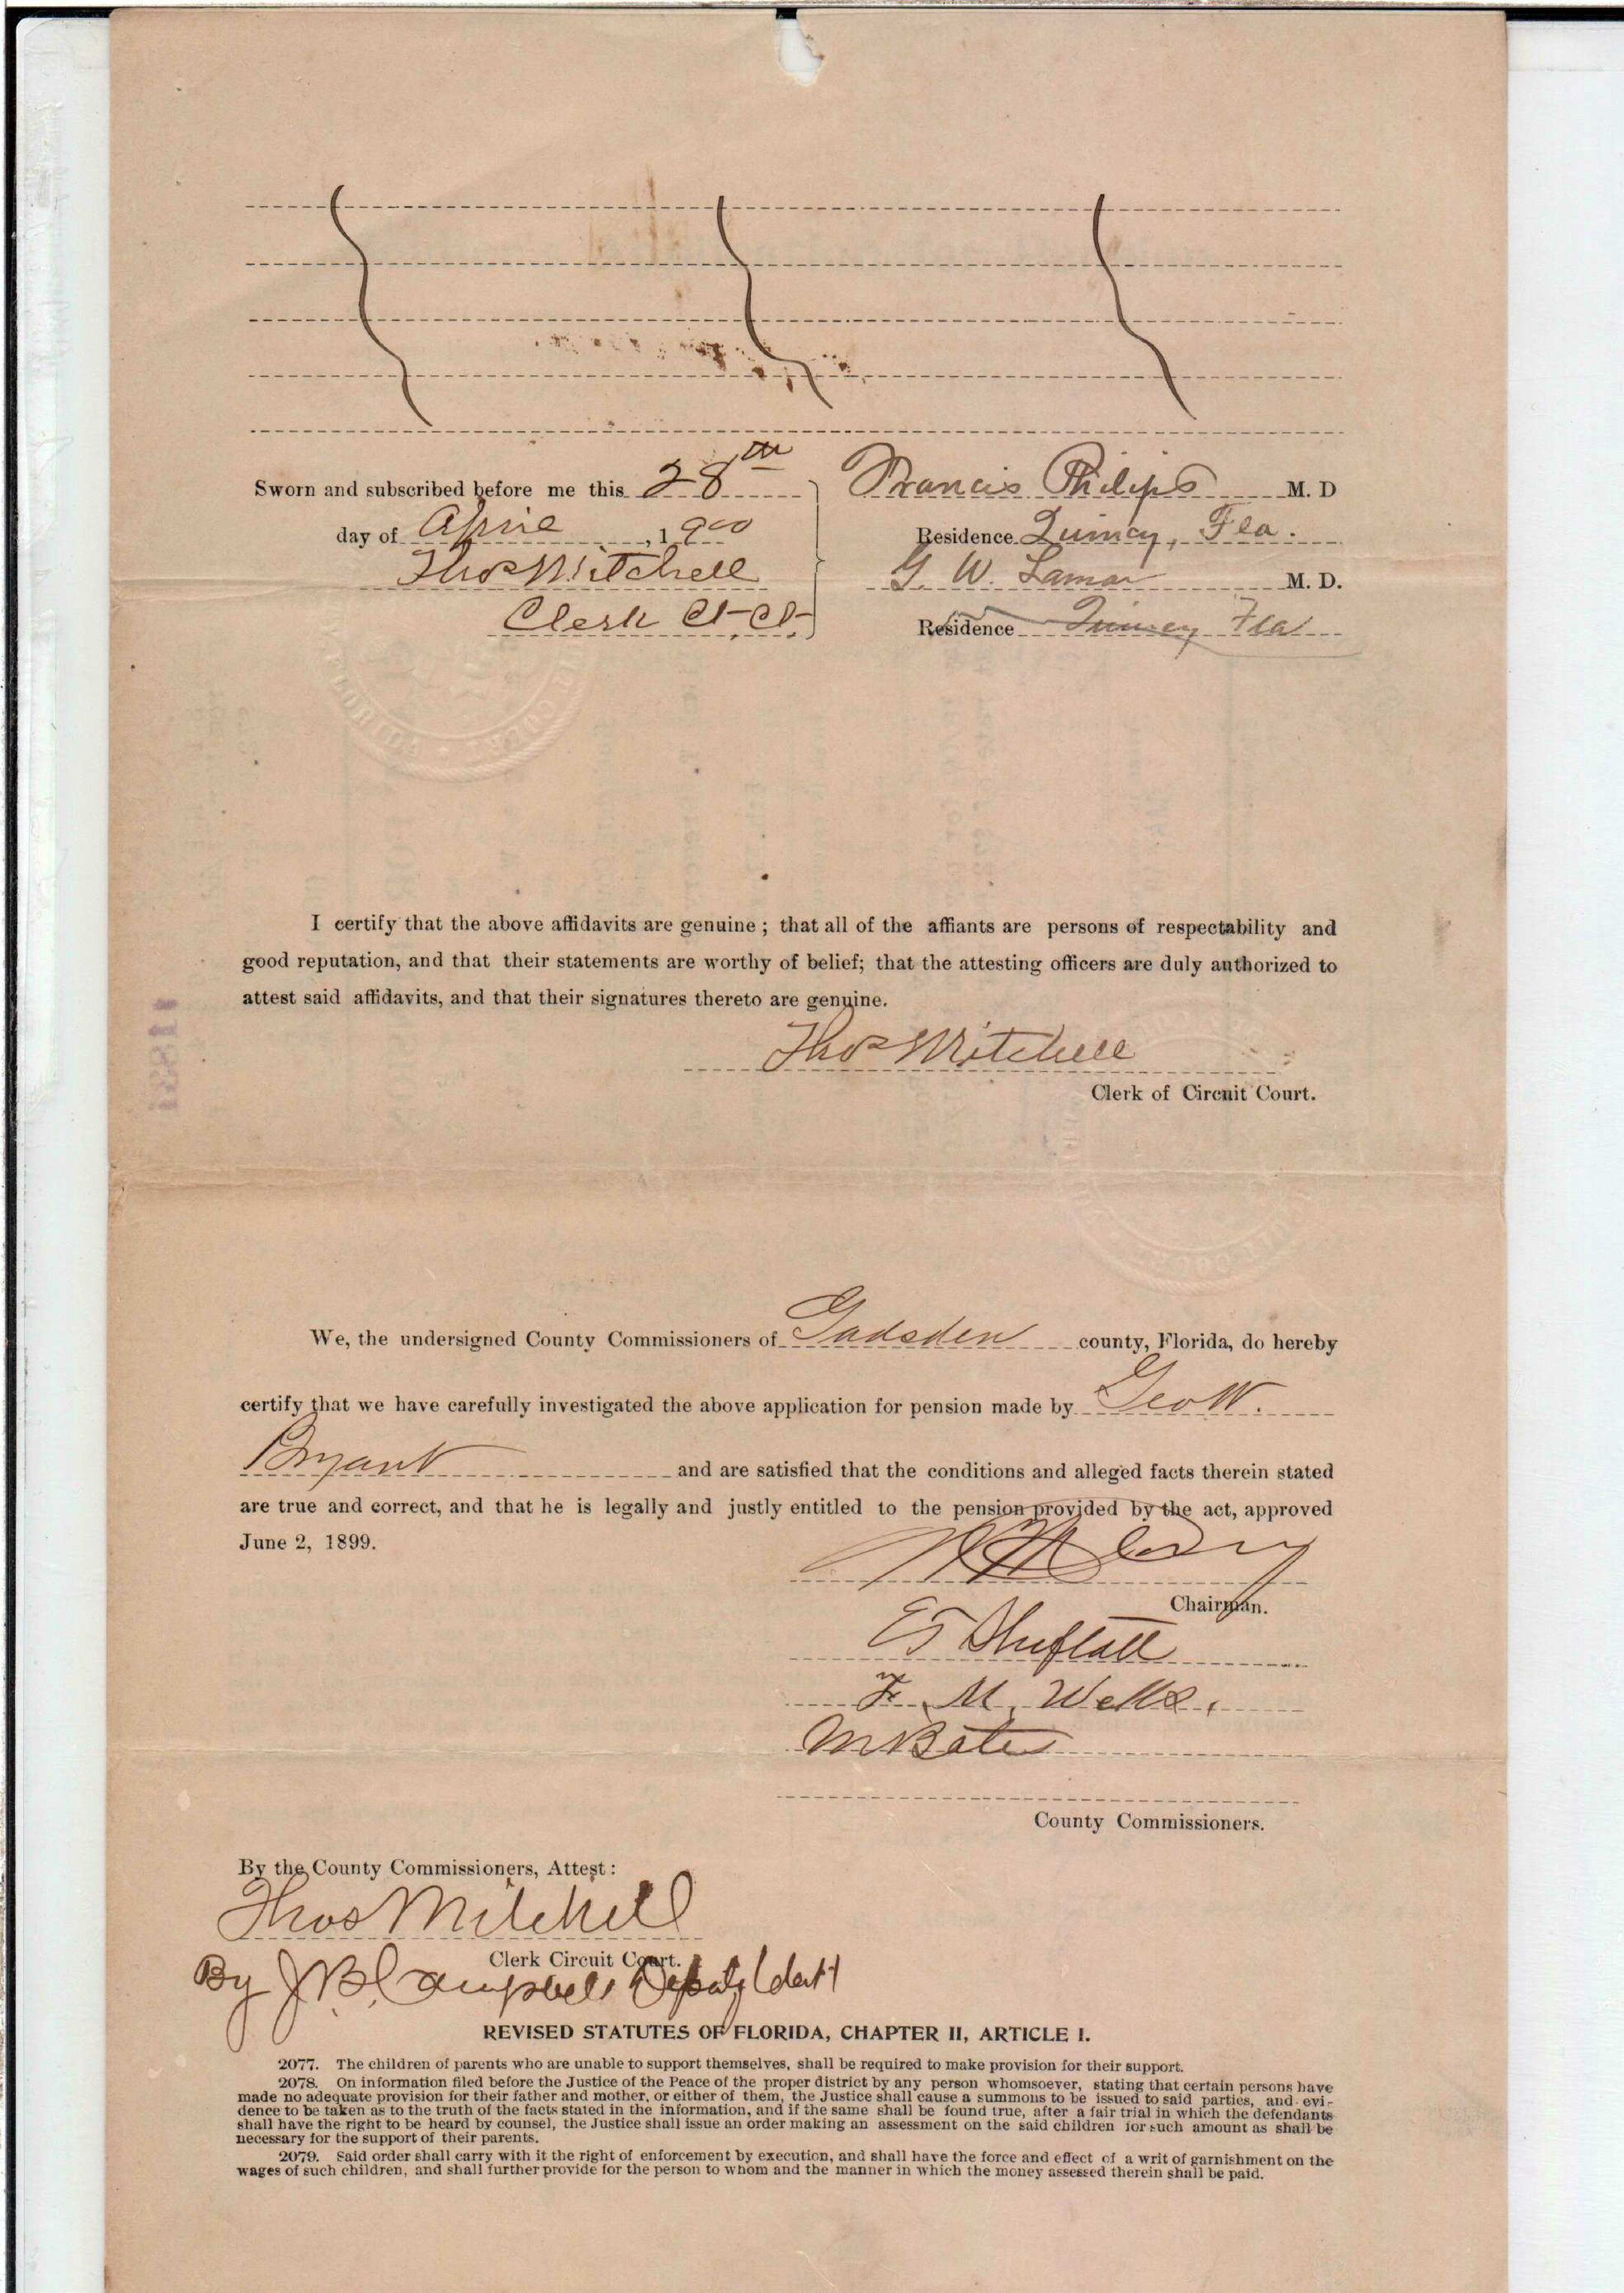 Sworn and subscribed before me this 28th
day of April, 1900
Thos Mitchell
Clerk Ct. Ct.
Francis Philips M. D
Residence Quincy, Fla.
G. W. Lamar M. D.
Residence Quincy Fla
I certify that the above affidavits are genuine; that all of the affiants are persons of respectability and
good reputation, and that their statements are worthy of belief; that the attesting officers are duly authorized to
attest said affidavits, and that their signatures thereto are genuine.
Thos Mitchell
Clerk of Circuit Court.
We, the undersigned County Commissioners of Gadsden county, Florida, do hereby
certify that we have carefully investigated the above application for pension made by Geo W.
Bryant and are satisfied that the conditions and alleged facts therein stated
are true and correct, and that he is legally and justly entitled to the pension provided by the act, approved
June 2, 1899.
Chairman.
E T Shuftall
F. M. Wells.
M Bates
County Commissioners.
By the County Commissioners, Attest:
Thos Mitchell
Clerk Circuit Court.
By J. B. Campbell Deputy Clerk
REVISED STATUTES OF FLORIDA, CHAPTER II, ARTICLE I.
2077. The children of parents who are unable to support themselves, shall be required to make provision for their support.
2078. On information filed before the Justice of the Peace of the proper district by any person whomsoever, stating that certain persons have
made no adequate provision for their father and mother, or either of them, the Justice shall cause a summons to be issued to said parties, and evi-
dence to be taken as to the truth of the facts stated in the information, and if the same shall be found true, after a fair trial in which the defendants
shall have the right to be heard by counsel, the Justice shall issue an order making an assessment on the said children for such amount as shall be
necessary for the support of their parents.
2079. Said order shall carry with it the right of enforcement by execution, and shall have the force and effect of a writ of garnishment on the
wages of such children, and shall further provide for the person to whom and the manner in which the money assessed therein shall be paid.